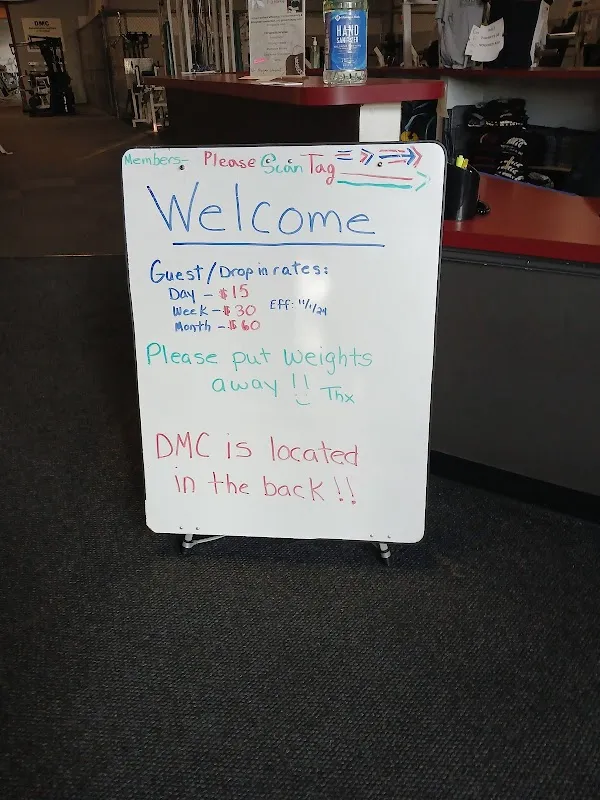 DMC
HAND
SANITIZER
Members- Please Scan Tag
Welcome
Guest/Drop in rates:
Day - $15
Week - $30 EFF: 11/1/24
Month - $60
Please put weights
away!! Thx
DMC is located
in the back!!